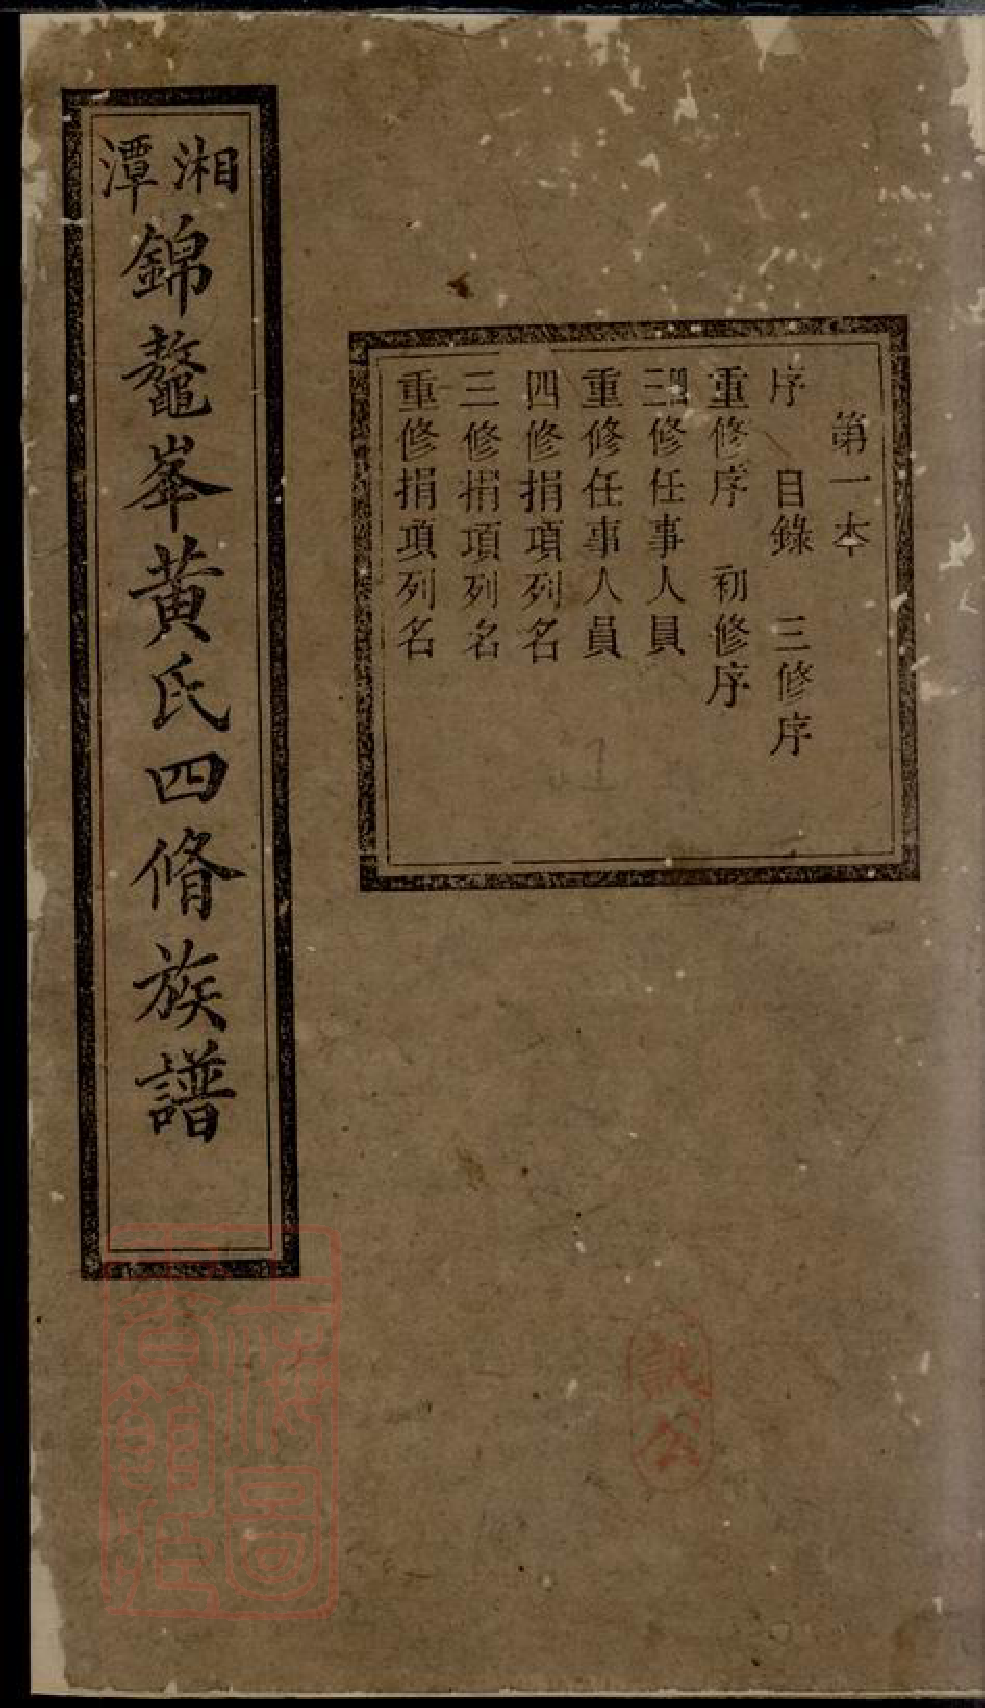 第一本
序　目錄　三修序
重修序　初修序
三四修任事人員
重修任事人員
四修捐項列名
三修捐項列名
重修捐項列名
湘潭錦鼇峯黃氏四脩族譜
上海圖書館藏